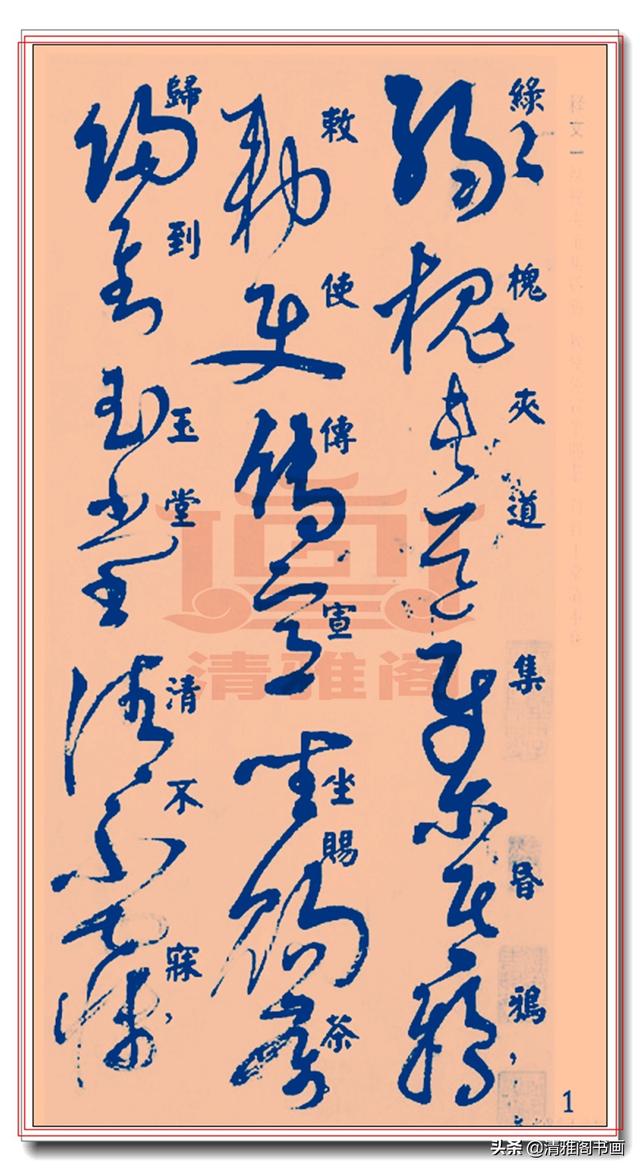 綠槐夾道集昏鴉，
敕使傳宣坐賜茶
歸到玉堂清不寐，
清雅阁
1
头条 @清雅阁书画